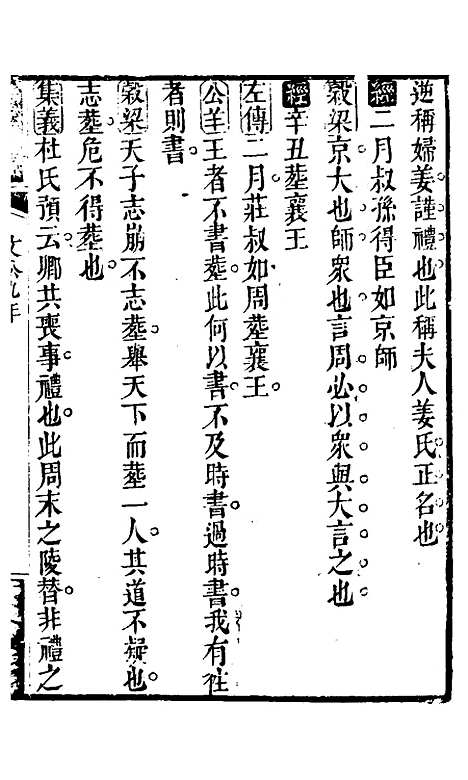 逆稱婦姜謹禮也此稱夫人姜氏正名也
經二月叔孫得臣如京師
穀梁京大也師衆也言周必以衆與大言之也
經辛丑塟襄王
左傳二月莊叔如周塟襄王
公羊王者不書塟此何以書不及時書過時書我有往
者則書
穀梁天子志崩不志塟舉天下而塟一人其道不疑也
志塟危不得塟也
集義杜氏預云卿共喪事禮也此周末之陵替非禮之
文公九年